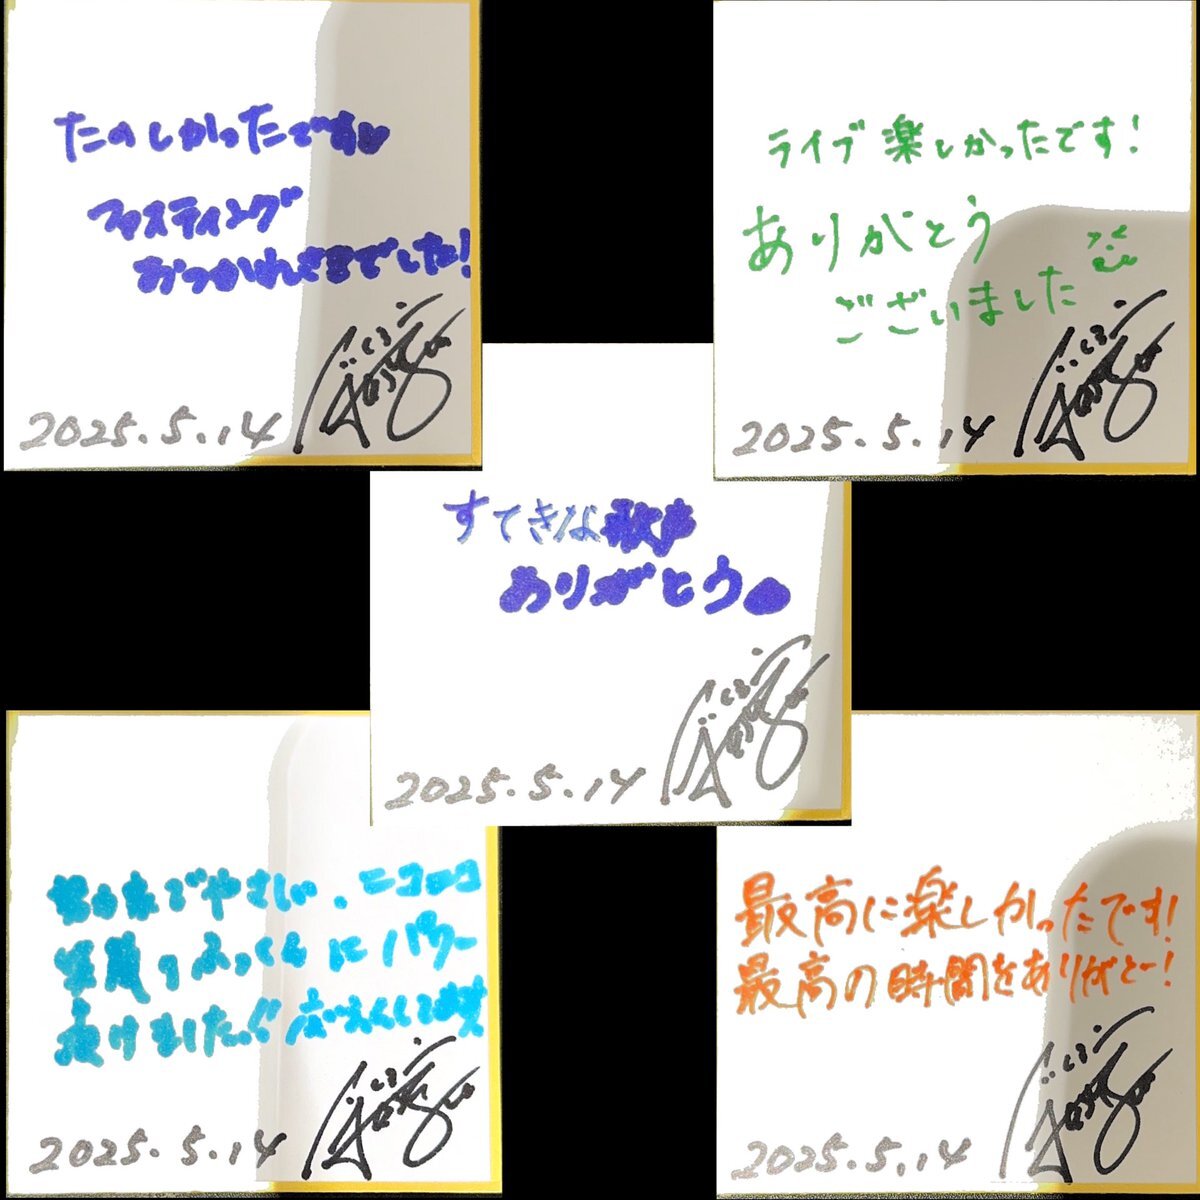 たのしかったです
ファスティング
おつかれさまでした!
2025.5.14
ライブ楽しかったです!
ありがとう
ございました
2025.5.14
すてきな歌声
ありがとう
2025.5.14
でやさしい、ニコニコ
笑顔
にパワー
ました
2025.5.14
最高に楽しかったです!
最高の時間をありがとー!
2025.5.14